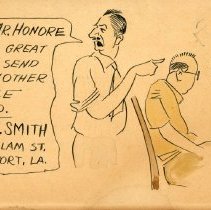 MR. HONORE
GREAT
SEND
NOTHER
E
D.
. SMITH
LAM ST.
PORT, LA.